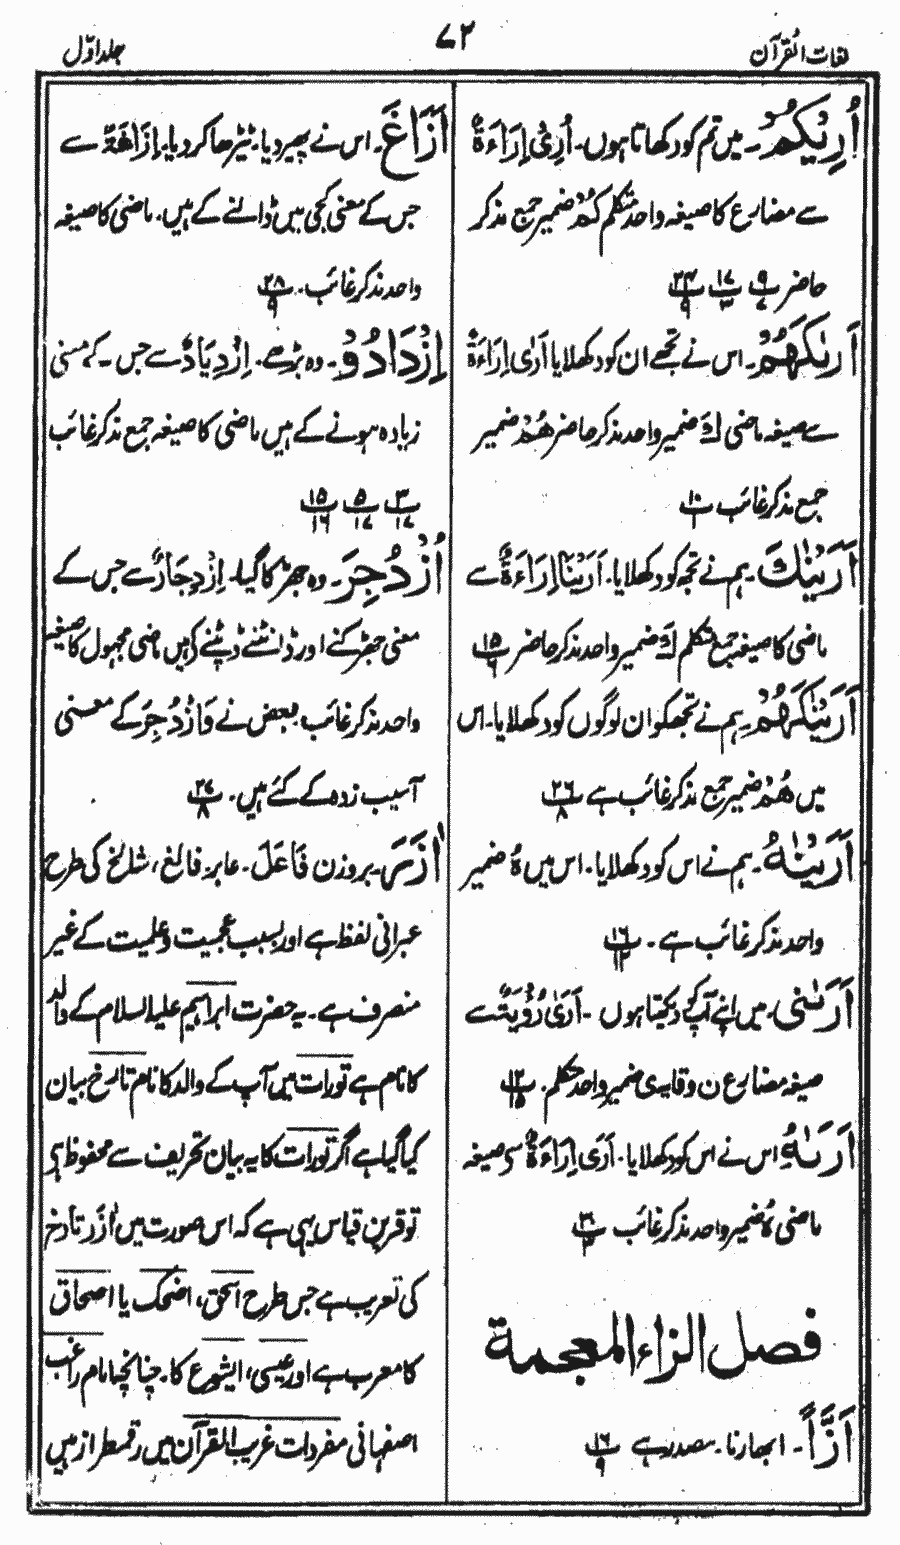 لغات القرآن
۷۲
جلد اوّل
اُرِيْكُمْ۔ میں تم کو دکھاتا ہوں۔ اُرِیْ اِرَاءَۃٌ
سے مضارع کا صیغہ واحد متکلم کُمْ ضمیر جمع مذکر
حاضر ۹/۷ ۱۷/۳ ۲۴/۹
اَرٰىكَهُمْ۔ اس نے تجھے ان کو دکھلایا اَرٰی اِرَاءَۃٌ
سے صیغہ ماضی كَ ضمیر واحد مذکر حاضر هُمْ ضمیر
جمع مذکر غائب ۱۰/۱
اَرَيْنٰكَ۔ ہم نے تجھ کو دکھلایا۔ اَرَيْنَا اِرَاءَۃٌ سے
ماضی کا صیغہ جمع متکلم كَ ضمیر واحد مذکر حاضر ۱۵/۶
اَرَيْنٰكَهُمْ۔ ہم نے تجھکو ان لوگوں کو دکھلایا۔ اس
میں هُمْ ضمیر جمع مذکر غائب ہے ۲۶/۸
اَرَيْنٰهُ۔ ہم نے اس کو دکھلایا۔ اس میں ہٗ ضمیر
واحد مذکر غائب ہے۔ ۱۶/۱۲
اَرٰىنِيْ۔ میں اپنے آپ کو دیکھتا ہوں۔ اَرٰی رُؤْيَةٌ سے
صیغہ مضارع ن وقایہ ی ضمیر واحد متکلم۔ ۱۲/۱۵
اَرٰىهُ اس نے اس کو دکھلایا۔ اَرَی اِرَاءَۃٌ سے صیغہ
ماضی ہٗ ضمیر واحد مذکر غائب ۳۰/۳
فصل الزاء المعجمة
اَزًّا۔ ابھارنا۔ مصدر ہے ۱۶/۹
اَزَاغَ۔ اس نے پھیر دیا۔ ٹیڑھا کر دیا۔ اِزَاغَۃٌ سے
جس کے معنی کجی میں ڈالنے کے ہیں۔ ماضی کا صیغہ
واحد مذکر غائب۔ ۲۸/۹
اِزْدَادُوْا۔ وہ بڑھے۔ اِزْدِيَادٌ سے جس کے معنی
زیادہ ہونے کے ہیں ماضی کا صیغہ جمع مذکر غائب
۳/۱۷ ۵/۱۷ ۱۵/۱۶
اُزْدُجِرَ۔ وہ جھڑکا گیا۔ اِزْدِجَارٌ سے جس کے
معنی جھڑکنے اور ڈانٹنے ڈپٹنے کی ہیں ماضی مجہول کا صیغہ
واحد مذکر غائب، بعض نے وَازْدُجِرَ کے معنی
آسیب زدہ کے کئے ہیں۔ ۲۷/۸
اٰزَرَ۔ بروزن فَاعَلَ۔ عابر، فالغ، شالخ کی طرح
عبرانی لفظ ہے اور بسبب عجمیت و علمیت کے غیر
منصرف ہے۔ یہ حضرت ابراہیم علیہ السلام کے والد
کا نام ہے تورات میں آپ کے والد کا نام تارخ بیان
کیا گیا ہے اگر تورات کا یہ بیان تحریف سے محفوظ ہی
تو قرین قیاس یہی ہے کہ اس صورت میں اٰزَر تارخ
کی تعریب ہے جس طرح اسحٰق، اضحک یا اصحاق
کا معرب ہے اور عیسی، ایشوع کا۔ چنانچہ امام راغب
اصفہانی مفردات غریب القرآن میں رقمطراز ہیں